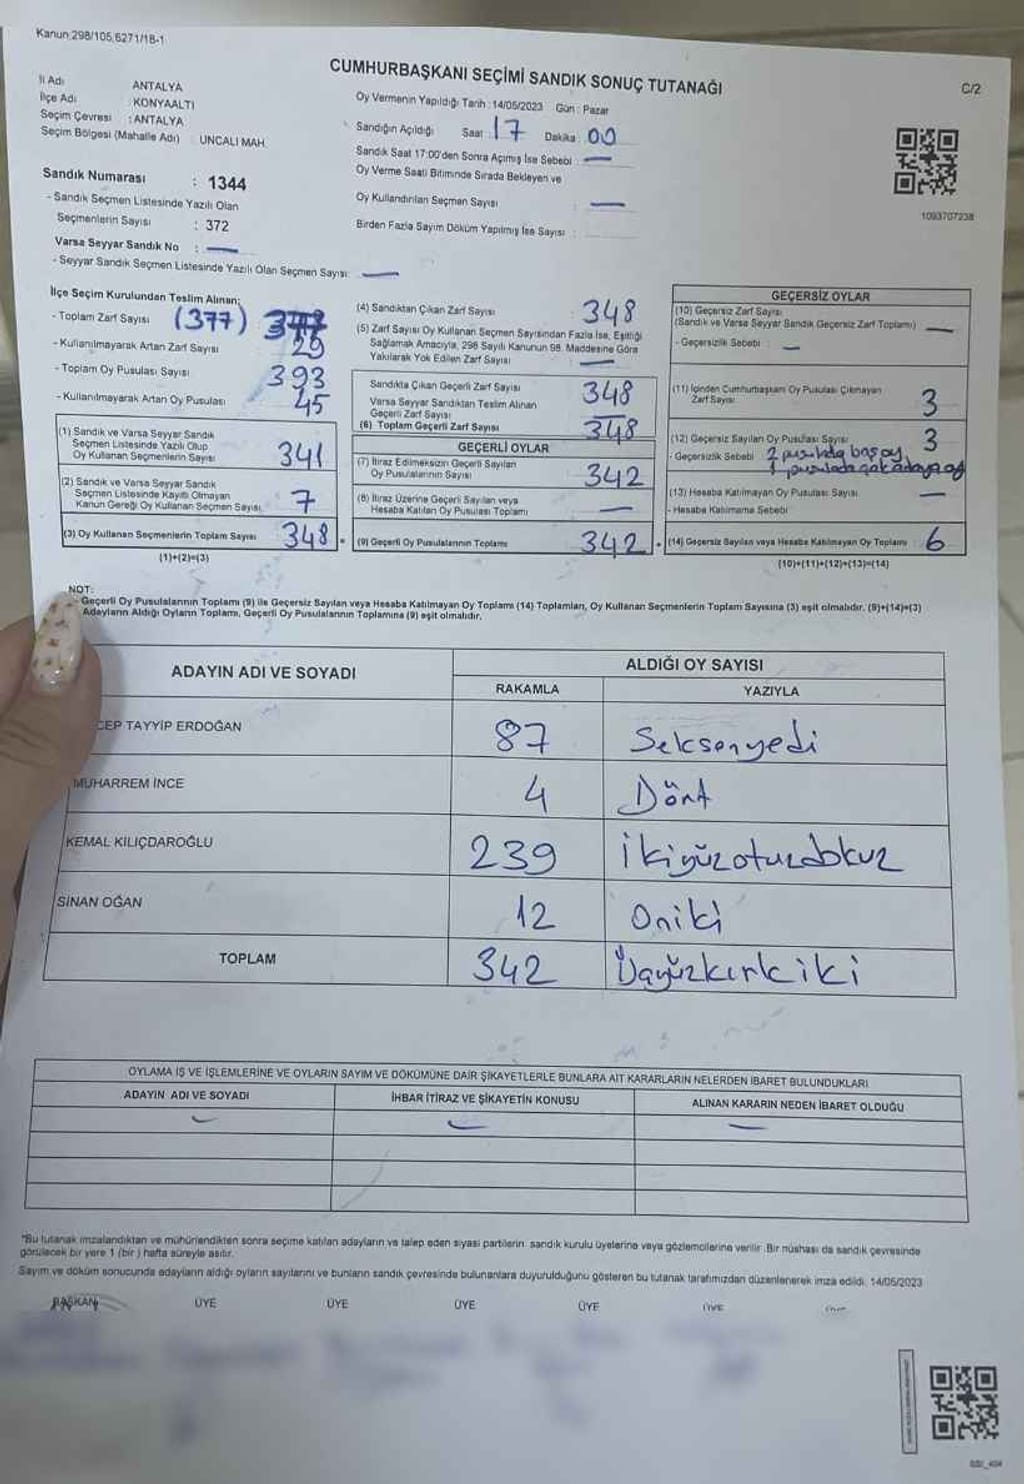 Kanun:298/105,6271/18-1
CUMHURBAŞKANI SEÇİMİ SANDIK SONUÇ TUTANAĞI
C/2
İl Adı ANTALYA
İlçe Adı : KONYAALTI
Seçim Çevresi : ANTALYA
Seçim Bölgesi (Mahalle Adı) UNCALI MAH.
Oy Vermenin Yapıldığı Tarih : 14/05/2023 Gün : Pazar
Sandığın Açıldığı Saat : 17 Dakika : 00
Sandık Saat 17:00'den Sonra Açımış İse Sebebi : —
Oy Verme Saati Bitiminde Sırada Bekleyen ve
Oy Kullandırılan Seçmen Sayısı : —
Birden Fazla Sayım Döküm Yapılmış İse Sayısı :
1093707238
Sandık Numarası : 1344
- Sandık Seçmen Listesinde Yazılı Olan
Seçmenlerin Sayısı : 372
Varsa Seyyar Sandık No : —
- Seyyar Sandık Seçmen Listesinde Yazılı Olan Seçmen Sayısı: —
İlçe Seçim Kurulundan Teslim Alınan:
- Toplam Zarf Sayısı (377)
- Kullanılmayarak Artan Zarf Sayısı 29
- Toplam Oy Pusulası Sayısı 393
- Kullanılmayarak Artan Oy Pusulası 45
(1) Sandık ve Varsa Seyyar Sandık
Seçmen Listesinde Yazılı Olup
Oy Kullanan Seçmenlerin Sayısı 341
(2) Sandık ve Varsa Seyyar Sandık
Seçmen Listesinde Kayıtlı Olmayan
Kanun Gereği Oy Kullanan Seçmen Sayısı 7
(3) Oy Kullanan Seçmenlerin Toplam Sayısı 348
(1)+(2)=(3)
(4) Sandıktan Çıkan Zarf Sayısı 348
(5) Zarf Sayısı Oy Kullanan Seçmen Sayısından Fazla İse, Eşitliği
Sağlamak Amacıyla, 298 Sayılı Kanunun 98. Maddesine Göre
Yakılarak Yok Edilen Zarf Sayısı —
Sandıkta Çıkan Geçerli Zarf Sayısı 348
Varsa Seyyar Sandıktan Teslim Alınan
Geçerli Zarf Sayısı —
(6) Toplam Geçerli Zarf Sayısı 348
GEÇERLİ OYLAR
(7) İtiraz Edilmeksizin Geçerli Sayılan
Oy Pusulasının Sayısı 342
(8) İtiraz Üzerine Geçerli Sayılan veya
Hesaba Katılan Oy Pusulası Toplamı —
(9) Geçerli Oy Pusulalarının Toplamı 342
GEÇERSİZ OYLAR
(10) Geçersiz Zarf Sayısı
(Sandık ve Varsa Seyyar Sandık Geçersiz Zarf Toplamı) —
- Geçersizlik Sebebi : —
(11) İçinden Cumhurbaşkanı Oy Pusulası Çıkmayan
Zarf Sayısı 3
(12) Geçersiz Sayılan Oy Pusulası Sayısı 3
- Geçersizlik Sebebi 2 pusulada boş oy
1 pusulada çok adaya oy
(13) Hesaba Katılmayan Oy Pusulası Sayısı —
- Hesaba Katılmama Sebebi
(14) Geçersiz Sayılan veya Hesaba Katılmayan Oy Toplamı 6
(10)+(11)+(12)+(13)=(14)
NOT:
- Geçerli Oy Pusulalarının Toplamı (9) ile Geçersiz Sayılan veya Hesaba Katılmayan Oy Toplamı (14) Toplamları, Oy Kullanan Seçmenlerin Toplam Sayısına (3) eşit olmalıdır. (9)+(14)=(3)
Adayların Aldığı Oyların Toplamı, Geçerli Oy Pusulalarının Toplamına (9) eşit olmalıdır.
ADAYIN ADI VE SOYADI
ALDIĞI OY SAYISI
RAKAMLA YAZIYLA
CEP TAYYİP ERDOĞAN 87 Seksenyedi
MUHARREM İNCE 4 Dört
KEMAL KILIÇDAROĞLU 239 ikiyüzotuzdokuz
SİNAN OĞAN 12 Oniki
TOPLAM 342 Üçyüzkırkiki
OYLAMA İŞ VE İŞLEMLERİNE VE OYLARIN SAYIM VE DÖKÜMÜNE DAİR ŞİKAYETLERLE BUNLARA AİT KARARLARIN NELERDEN İBARET BULUNDUKLARI
ADAYIN ADI VE SOYADI İHBAR İTİRAZ VE ŞİKAYETİN KONUSU ALINAN KARARIN NEDEN İBARET OLDUĞU
— — —
"Bu tutanak imzalandıktan ve mühürlendikten sonra seçime katılan adayların ve talep eden siyasi partilerin sandık kurulu üyelerine veya gözlemcilerine verilir. Bir nüshası da sandık çevresinde
görülecek bir yere 1 (bir) hafta süreyle asılır.
Sayım ve döküm sonucunda adayların aldığı oyların sayılarını ve bunların sandık çevresinde bulunanlara duyurulduğunu gösteren bu tutanak tarafımızdan düzenlenerek imza edildi. 14/05/2023
BAŞKAN ÜYE ÜYE ÜYE ÜYE ÜYE ÜYE